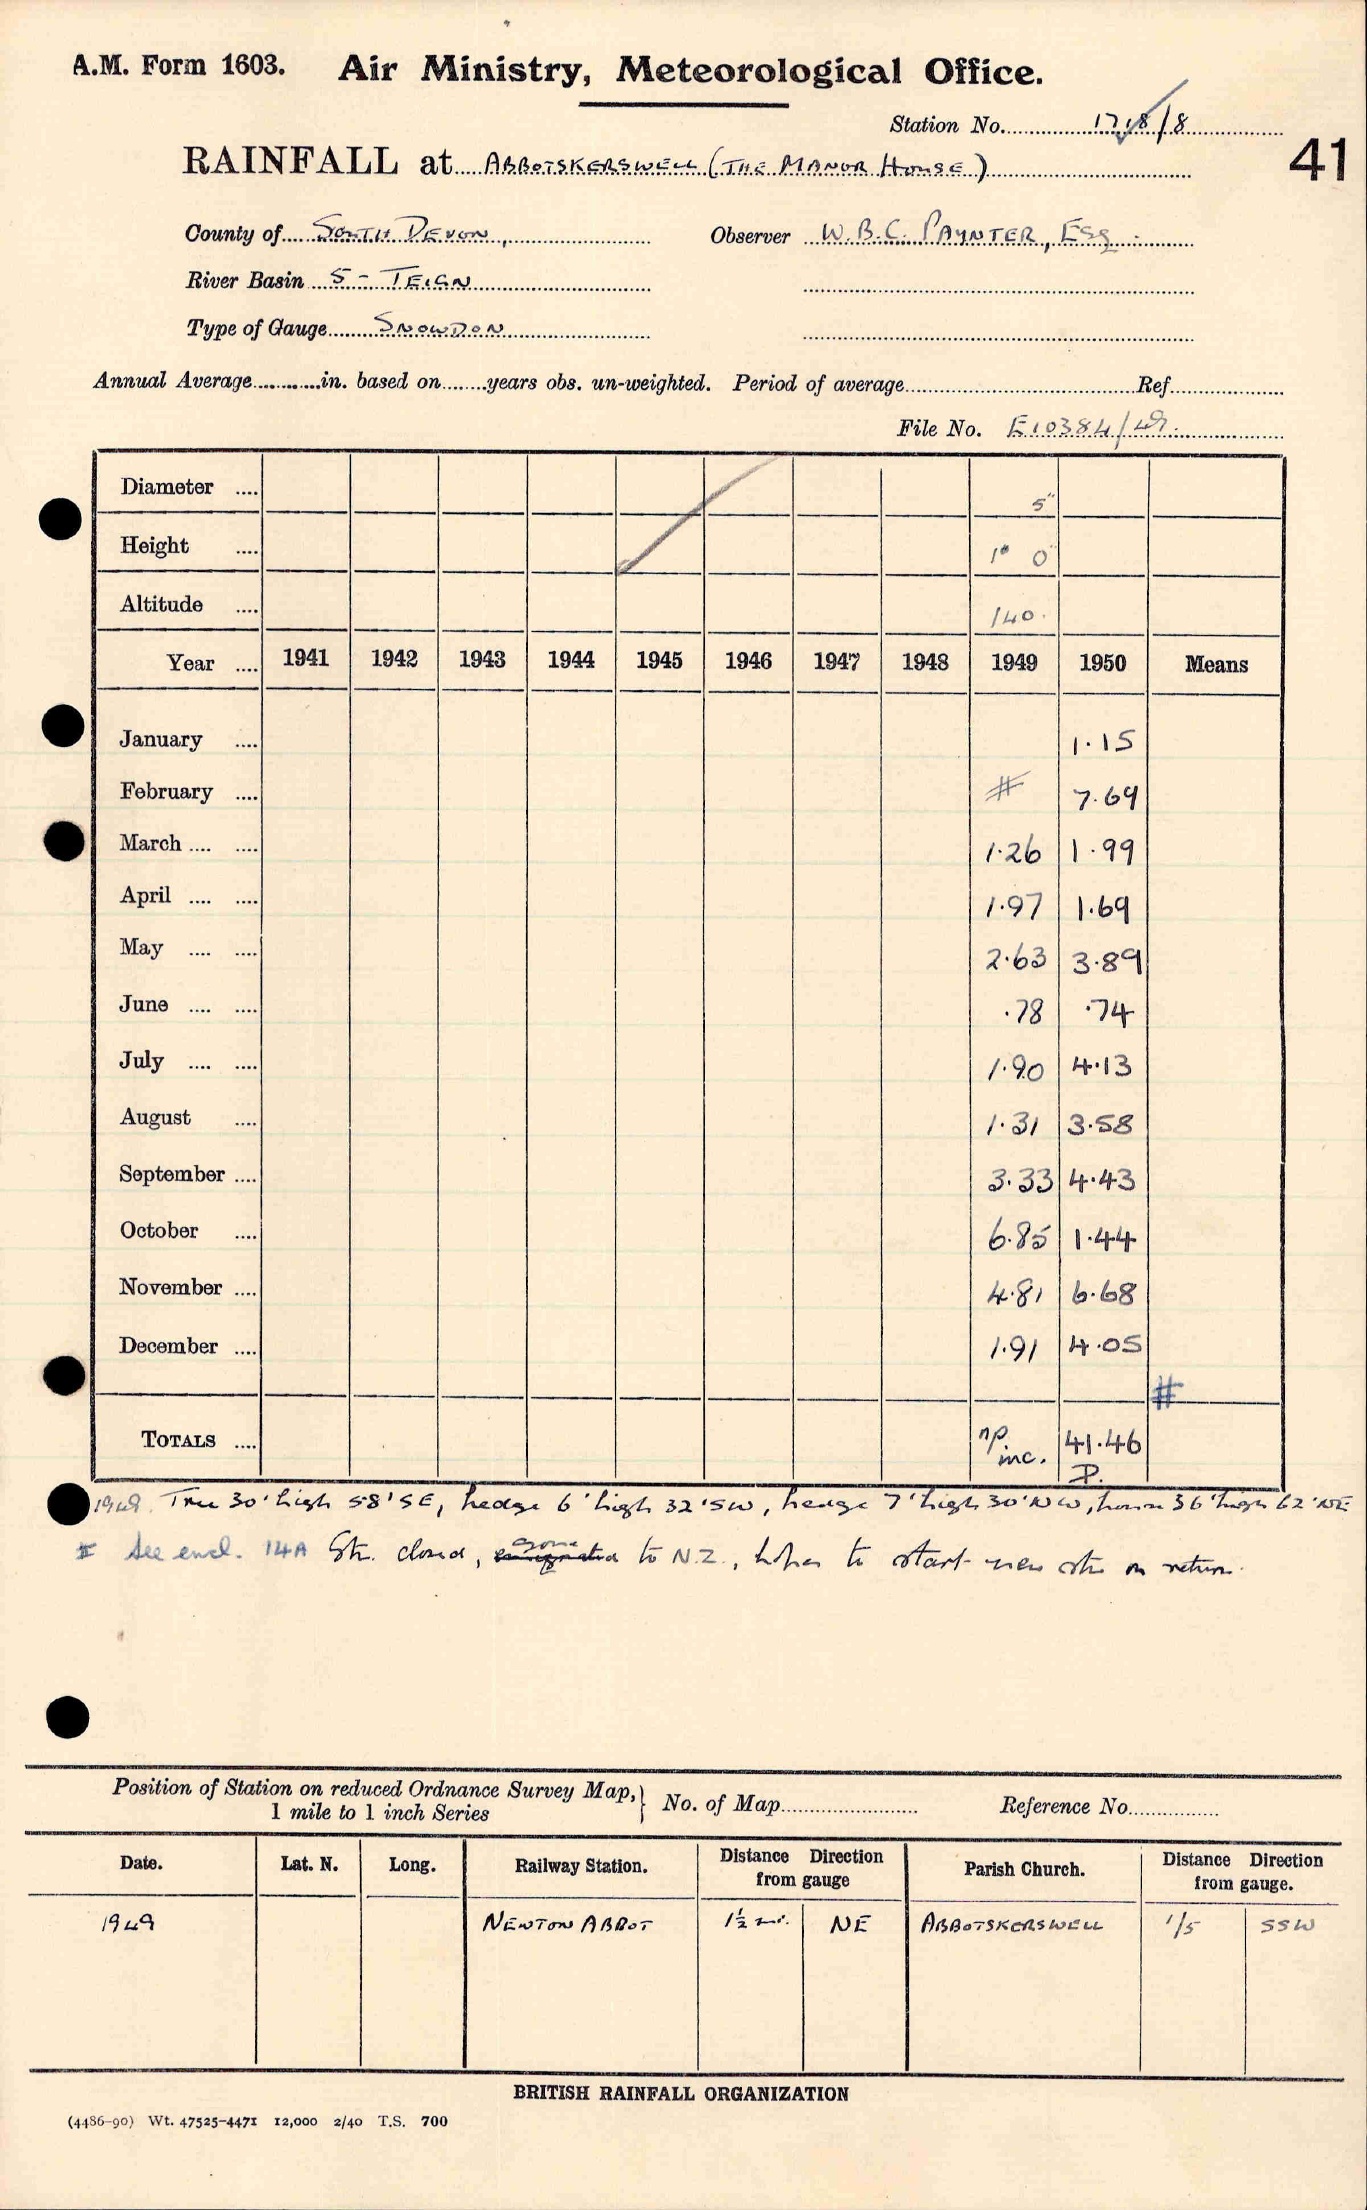 A.M. Form 1603. Air Ministry, Meteorological Office.
Station No. 1718/8
41
RAINFALL at ABBOTSKERSWELL (THE MANOR HOUSE)
County of SOUTH DEVON, Observer W.B.C. PAYNTER, ESQ.
River Basin 5 - TEIGN
Type of Gauge SNOWDON
Annual Average............in. based on........years obs. un-weighted. Period of average............Ref............
File No. E10384/49.
Diameter .... 5"
Height .... 1' 0"
Altitude .... 140.
Year .... 1941 1942 1943 1944 1945 1946 1947 1948 1949 1950 Means
January .... 1.15
February .... # 7.69
March .... .... 1.26 1.99
April .... .... 1.97 1.69
May .... .... 2.63 3.89
June .... .... .78 .74
July .... .... 1.90 4.13
August .... 1.31 3.58
September .... 3.33 4.43
October .... 6.85 1.44
November .... 4.81 6.68
December .... 1.91 4.05
#
TOTALS .... inc. 41.46
P.
1949. Tree 30' high 58' SE, hedge 6' high 32' SW, hedge 7' high 30' NW, house 36' high 62' NE
# See encl. 14A Stn. closed, gone to N.Z., hopes to start new stn on return.
Position of Station on reduced Ordnance Survey Map, } No. of Map............ Reference No............
1 mile to 1 inch Series
Date. Lat. N. Long. Railway Station. Distance Direction from gauge Parish Church. Distance Direction from gauge.
1949 NEWTON ABBOT 1½ mi. NE ABBOTSKERSWELL 1/5 SSW
BRITISH RAINFALL ORGANIZATION
(4486-90) Wt. 47525-4471 12,000 2/40 T.S. 700